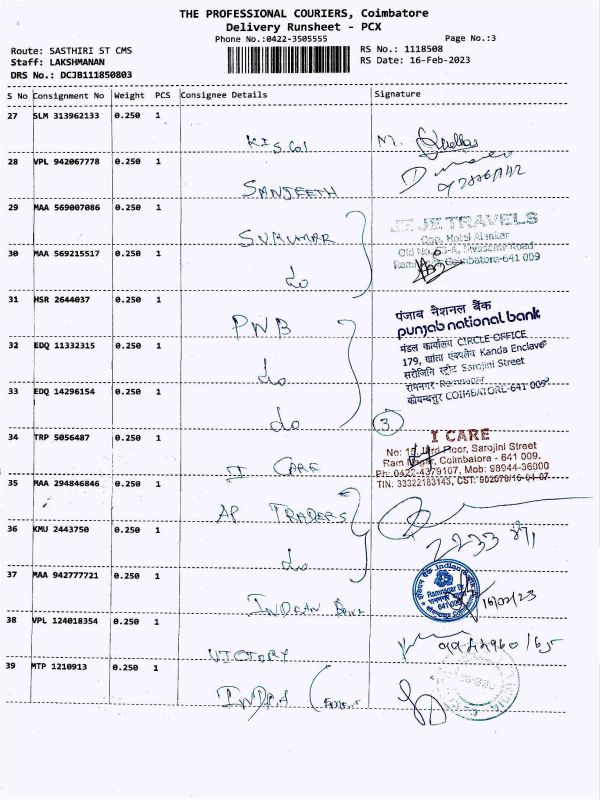 THE PROFESSIONAL COURIERS, Coimbatore
Delivery Runsheet - PCX
Phone No.:0422-3505555
Page No.:3
Route: SASTHIRI ST CMS
RS No.: 1118508
Staff: LAKSHMANAN
RS Date: 16-Feb-2023
DRS No.: DCJB111850803
S No Consignment No Weight PCS Consignee Details Signature
27 SLM 313962133 0.250 1
28 VPL 942067778 0.250 1
SANJEETH
29 MAA 569007086 0.250 1
SUKUMAR
JEJE TRAVELS
Coimbatore-641 009
30 MAA 569215517 0.250 1
do
31 HSR 2644037 0.250 1
PNB
पंजाब नैशनल बैंक
punjab national bank
मंडल कार्यालय CIRCLE OFFICE
32 EDQ 11332315 0.250 1
do
179, खांता एंक्लैव Kanda Enclave
सरोजिनि स्ट्रीट Sarojini Street
रामनगर Ramnagar
कोयम्बत्तूर COIMBATORE-641 009
33 EDQ 14296154 0.250 1
do
3
34 TRP 5056487 0.250 1
I CARE
I CARE
Floor, Sarojini Street
Ram Nagar, Coimbatore - 641 009.
Ph: 0422-4379107, Mob: 98944-36000
TIN: 33322183143, CST: 902078/16-04-07
35 MAA 294846846 0.250 1
AP TRADERS
36 KMU 2443750 0.250 1
do
37 MAA 942777721 0.250 1
INDIAN Bank
Indian
Ramnagar Br.
641 009
16/02/23
38 VPL 124018354 0.250 1
VICTORY
39 MTP 1210913 0.250 1
INDIA